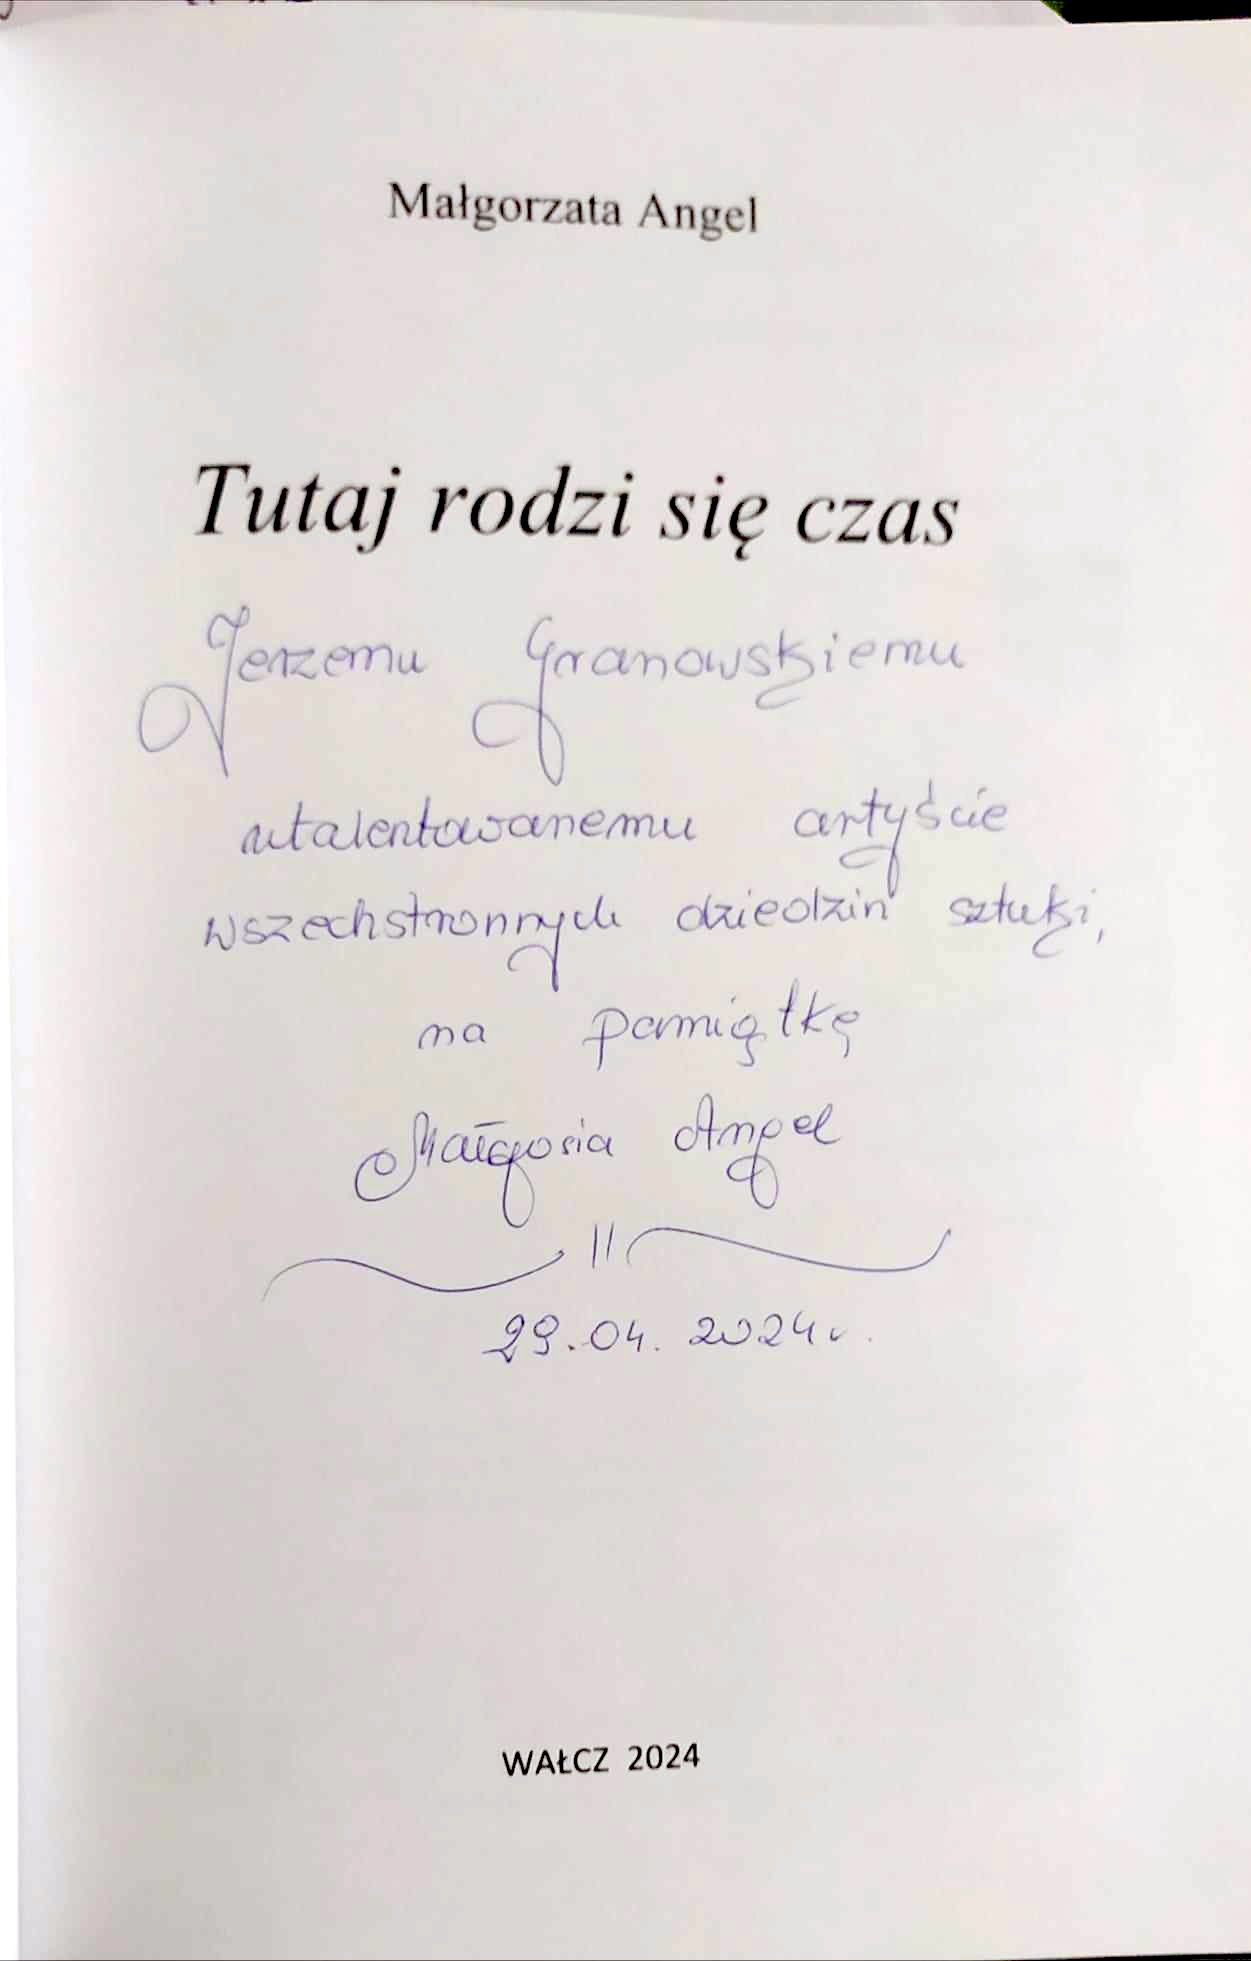 Małgorzata Angel
Tutaj rodzi się czas
Jerzemu Granowskiemu
utalentowanemu artyście
wszechstronnych dziedzin sztuki,
na pamiątkę
Małgosia Angel
29.04.2024r.
WAŁCZ 2024